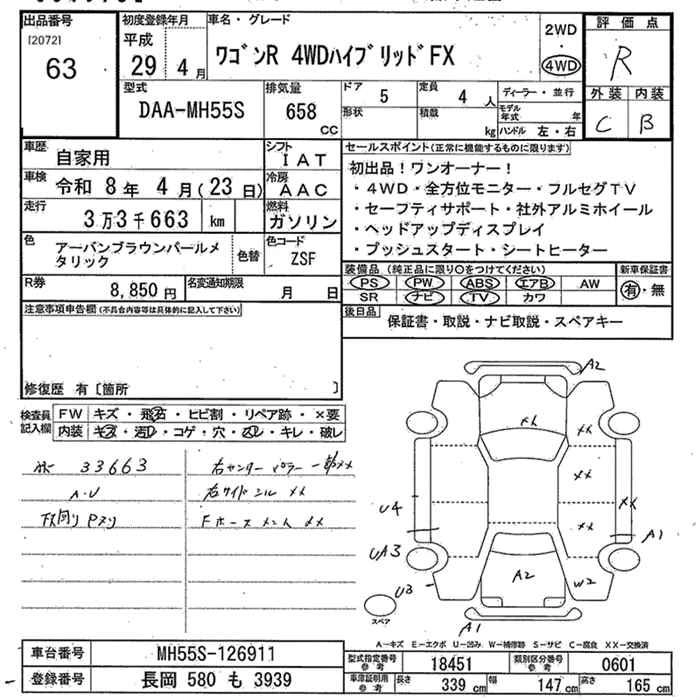 出品番号
[2072]
63
初度登録年月
平成
29 4 月
車名・グレード
ワゴンR 4WDハイブリッドFX
2WD
・
4WD
評価点
R
外装 内装
C B
型式
DAA-MH55S
排気量
658
CC
ドア
5
定員
4 人
形状
積載
kg
ディーラー・並行
モデル年式 年
ハンドル 左・右
車歴
自家用
シフト
IAT
車検
令和 8年 4月(23日)
冷房
AAC
走行
3万3千663 km
燃料
ガソリン
色
アーバンブラウンパールメタリック
色替
色コード
ZSF
R券
8,850円
名変通知期限
月 日
セールスポイント(正常に機能するものに限ります)
初出品!ワンオーナー!
・4WD・全方位モニター・フルセグTV
・セーフティサポート・社外アルミホイール
・ヘッドアップディスプレイ
・プッシュスタート・シートヒーター
装備品(純正品に限り○をつけてください)
PS PW ABS エアB AW
SR ナビ TV カワ
新車保証書
有・無
後日品
保証書・取説・ナビ取説・スペアキー
注意事項申告欄(不具合内容等は具体的に記入して下さい)
修復歴 有〔箇所 〕
検査員記入欄
FW キズ・飛石・ヒビ割・リペア跡・×要
内装 キズ・汚レ・コゲ・穴・スレ・キレ・破レ
33663
A・U
下回りPヌリ
右センターピラー一部××
右サイドシル ××
A2
××
××
××
××
××
U4
UA3
U3
A1
A2
W2
A1
スペア
A−キズ E−エクボ U−凹み W−補修跡 S−サビ C−腐食 XX−交換済
車台番号
MH55S-126911
登録番号
長岡 580 も 3939
型式指定番号
参考
18451
類別区分番号
参考
0601
車庫証明用
参考
長さ
339 cm
幅
147 cm
高さ
165 cm